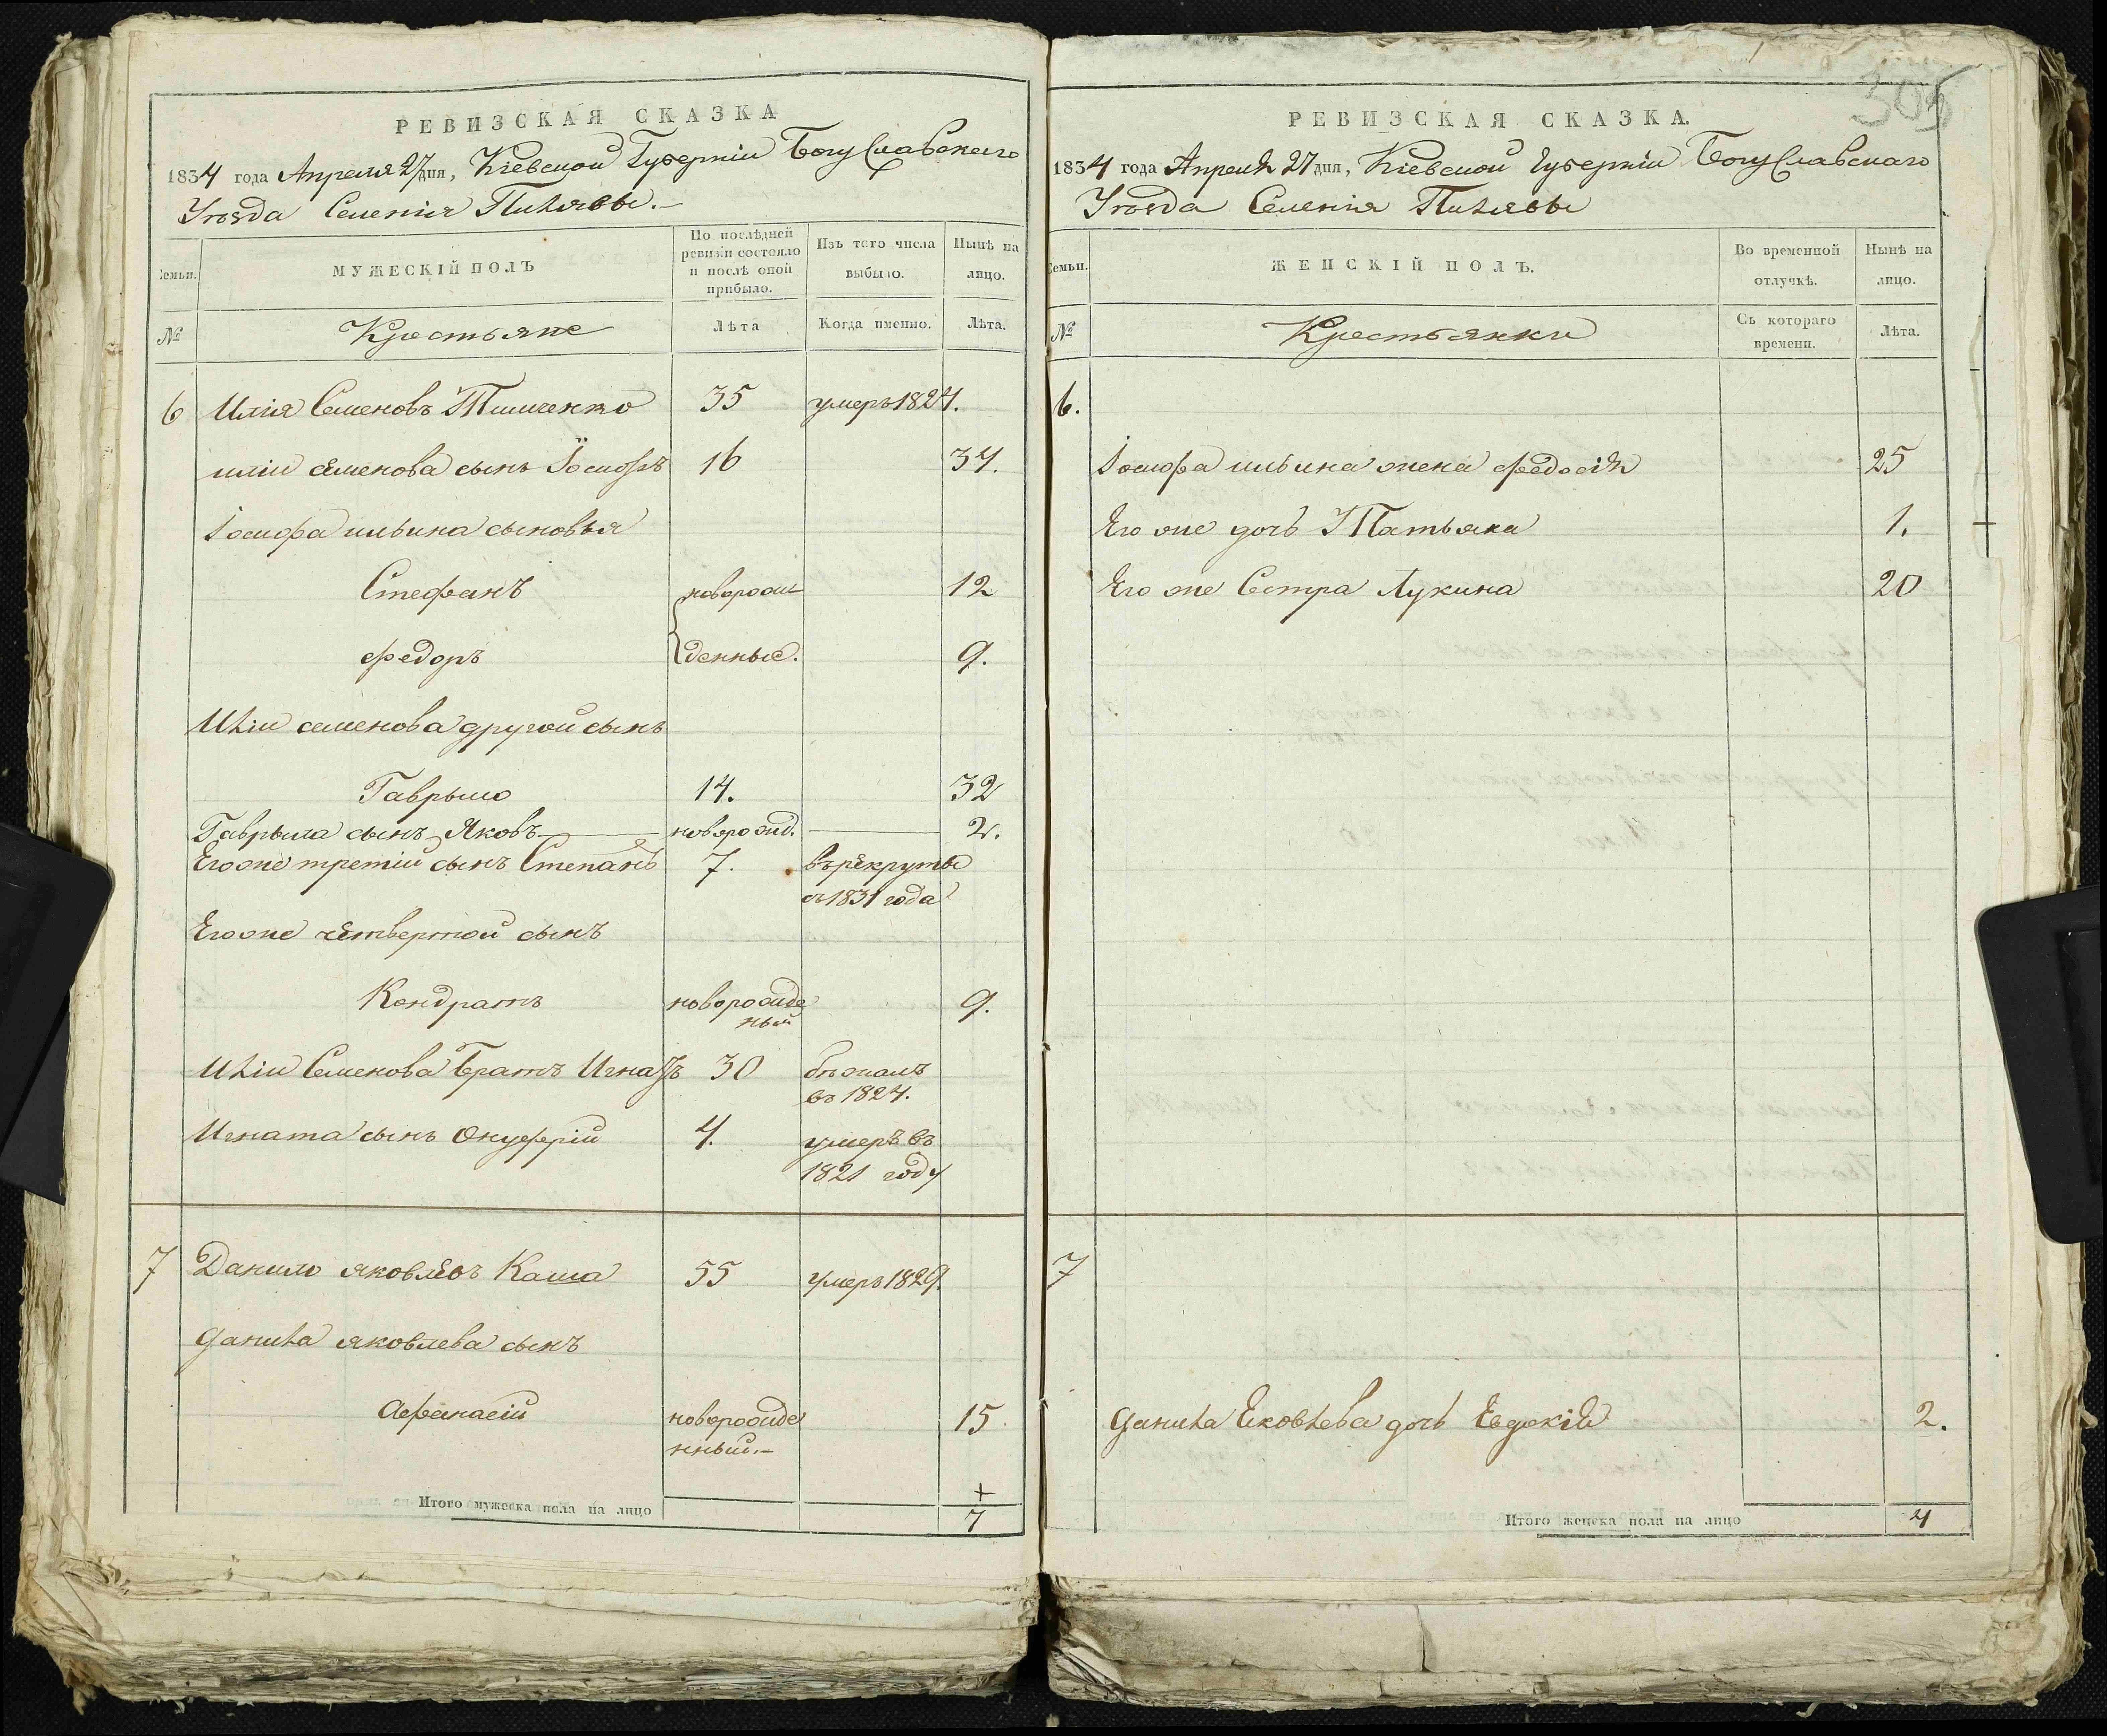 РЕВИЗСКАЯ СКАЗКА
1834 года Апреля 27 дня, Кіевской Губерніи Богуславскаго
Уѣзда Селенія Пилявы.-
Семьи.
МУЖЕСКІЙ ПОЛЪ
По послѣдней ревизіи состояло и послѣ оной прибыло.
Изъ того числа выбыло.
Нынѣ на лицо.
№
Крестьяне
Лѣта
Когда именно.
Лѣта.
6 Илія Семеновъ Тимченко 35 умеръ 1824.
иліи семенова сынъ Іосифъ 16 34.
Іосифа ильина сыновья
Стефанъ новорож 12
федоръ денные. 9.
Иліи семенова другой сынъ
Гаврыло 14. 32
Гаврыла сынъ Яковъ новорожд. 2.
Егоже третій сынъ Степанъ 7. въ рекруты
съ 1831 года
Егоже четвертой сынъ
Кондратъ новорожде 9.
ный
Иліи Семенова братъ Игнатъ 30 бѣжалъ
въ 1824.
Игната сынъ Онуфрій 4. умеръ въ
1821 году
7 Данило яковлевъ Каша 55 умеръ 1829.
Данила яковлева сынъ
Афанасій новорожде 15.
нный.-
Итого мужеска пола на лицо
+
7
305
РЕВИЗСКАЯ СКАЗКА.
1834 года Апреля 27 дня, Кіевской Губерніи Богуславскаго
Уѣзда Селенія Пилявы
Семьи.
ЖЕНСКІЙ ПОЛЪ.
Во временной отлучкѣ.
Нынѣ на лицо.
№
Крестьянки
Съ котораго времени.
Лѣта.
6.
Іосифа ильина жена федосія 25
Его же дочь Татьяна 1.
Его же Сестра Лукина 20
7
Данила Яковлева дочь Евдокія 2.
Итого женска пола на лицо 4